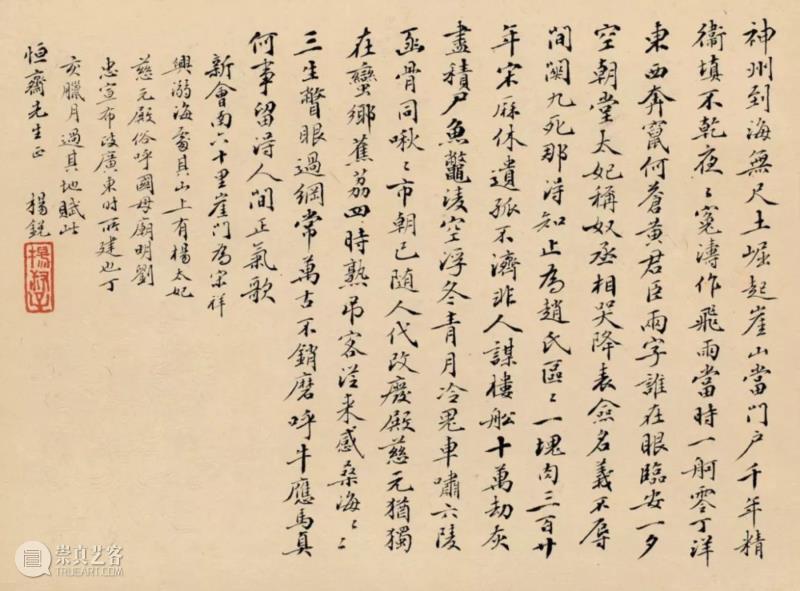 神州到海無尺土崛起崖山當門戶千年精
衞填不乾夜〻冤濤作飛雨當時一舸零丁洋
東西奔竄何蒼黃君臣兩字誰在眼臨安一夕
空朝堂太妃稱奴丞相哭降表僉名義不辱
間關九死那得知止為趙氏區〻一塊肉三百廿
年宋厤休遺孤不濟非人謀樓船十萬劫灰
盡積尸魚鼈淩空浮冬青月冷鬼車嘯六陵
函骨同啾〻市朝已随人代改廢殿慈元猶獨
在蠻鄉蕉荔四時熟吊客從来感桑海〻〻
三生瞥眼過綱常萬古不銷磨呼牛應馬真
何事留得人間正氣歌
新會南六十里崖門為宋祥
興溺海處其山上有楊太妃
慈元殿俗呼國母廟明劉
忠宣布政廣東時所建也丁
亥臘月過其地賦此
恒齋先生正 楊銳
崇真艺客
TRUEART.COM